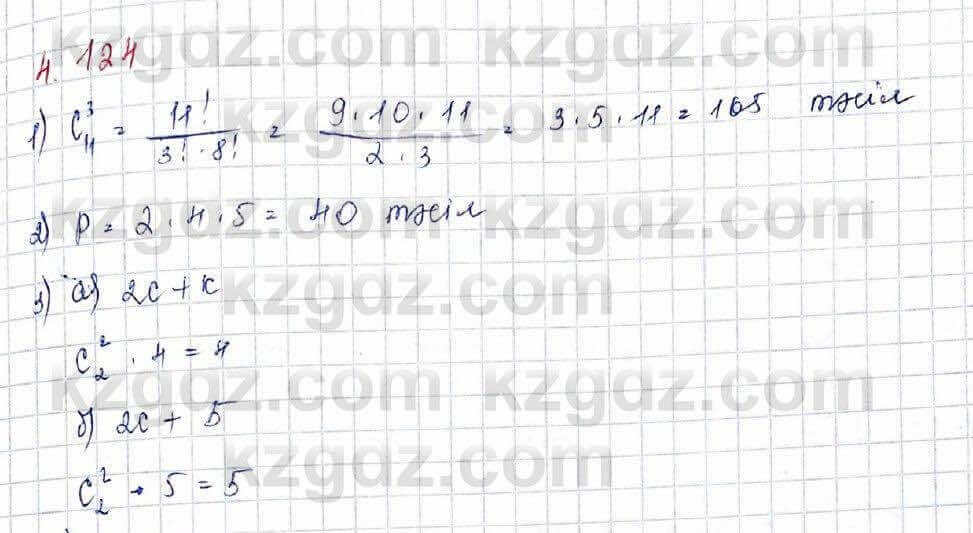 4. 124
1) C³₁₁ = 11! / (3! · 8!) = (9 · 10 · 11) / (2 · 3) = 3 · 5 · 11 = 165 тәсіл
2) P = 2 · 4 · 5 = 40 тәсіл
3) а) 2c + к
C²₂ · 4 = 4
б) 2c + 5
C²₂ · 5 = 5
kzgdz.com kzgdz.com
kzgdz.com kzgdz.com
kzgdz.com kzgdz.com
kzgdz.com
kzgdz.com kzgdz.com
kzgdz.com